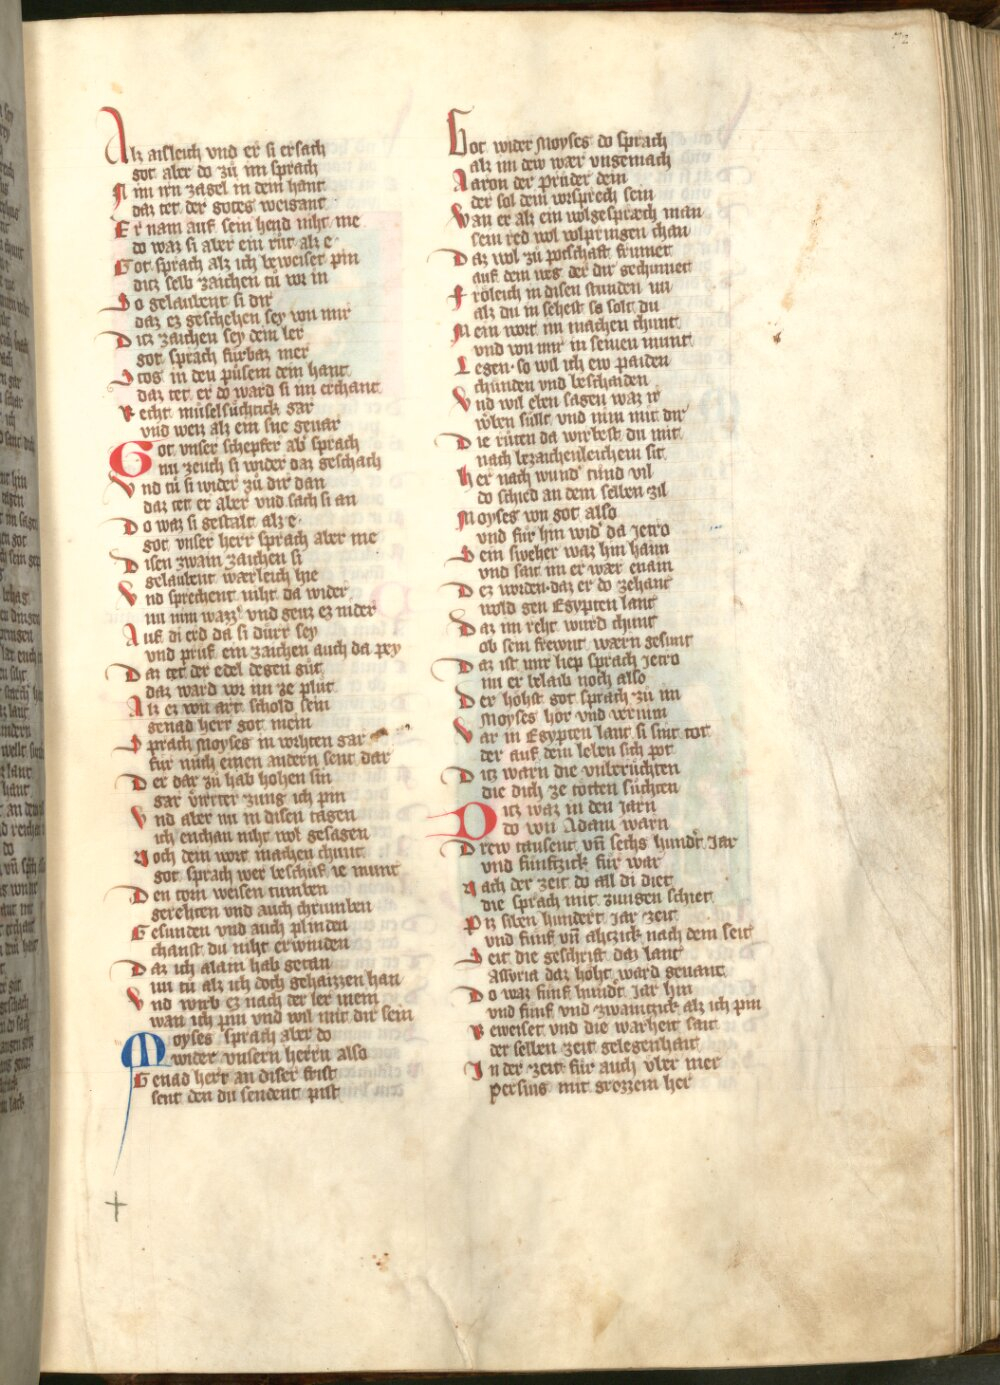 72
Alz aisleich vnd er si ersach
got aber do zů im sprach
Nim irn zagel in dein hant
daz tet der gotes weigant
Er nam auf sein hend niht me
do waz si aber ein růt alz e
Got sprach alz ich beweiset pin
ditz selb zaichen tů vor in
So gelaubent si dir
daz ez geschehen sey von mir
Ditz zaichen sey dein ler
got sprach fürbaz mer
Stoz in den půsem dein hant
daz tet er do ward si im erchant
Recht müselsüchtick gar
vnd weiz alz ein sne gevar
Got vnser schepfer ab sprach
nu zeuch si wider daz geschach
Vnd tů si wider zů dir dan
daz tet er aber vnd sach si an
Do waz si gestalt alz e
got vnser herr sprach aber me
Disen zwain zaichen si
gelaubent wærleich hie
Vnd sprechent niht da wider
nu nim wazzer vnd geuz ez nider
Auf di erd da si dürr sey
vnd prüf ein zaichen auch da pey
Daz tet der edel degen gůt
daz ward vor im ze plůt
Alz ez von art schold sein
genad herr got mein
Sprach Moyses in vorhten gar
für mich einen andern sent dar
Der dar zů hab hohen sin
gar virrter zung ich pin
Vnd aber nu in disen tagen
ich enchan niht wol gesagen
Noch dein wort machen chunt
got sprach wer beschůf ie munt
Den torn weisen tumben
gerehten vnd auch chrumben
Gesunden vnd auch plinden
chanst du niht erwinden
Daz ich alain hab getan
nu tů alz ich doch gehaizzen han
Vnd wirb ez nach der ler mein
wan ich pin vnd wil mit dir sein
Moyses sprach aber do
wider vnsern herrn also
Genad herr an diser frist
sent den du sendent pist
Got wider Moyses do sprach
alz im dew wær vngemach
Aaron der průder dein
der sol dein vorsprech sein
Wan er alz ein wolgespræch man
sein red wol volpringen chan
Daz wol zů potschaft frumet
auf dem weg der dir gechumet
Frőleich in disen stunden nu
alz du in sehest so solt du
Mein wort im machen chunt
vnd von mir in seinen munt
Legen so wil ich ew paiden
chünden vnd beschaiden
Vnd wil eben sagen waz ir
vͤben süllt vnd nim mit dir
Die růten da wirbest du mit
nach bezaichenleichem sit
Her nach wunder tund vil
do schied an dem selben zil
Moyses von got also
vnd für hin wider da Jetro
Sein sweher waz hin haim
vnd sait im er wær enain
Dez worden daz er do zehant
wold gen Egypten lant
Daz im reht wurd chunt
ob sein frewnt wærn gesunt
Daz ist mir liep sprach Jetro
nu er belaib noch also
Der hőhst got sprach zů im
Moyses hőr vnd vernim
Var in Egypten lant si sint tot
der auf dein leben sich pot
Ditz warn die vnberůchten
die dich ze tőtten sůchten
Ditz waz in den jarn
do von Adam warn
Drew tausent vnd sechs hundert Jar
vnd fünftzick für war
Nach der zeit do all di diet
die sprach mit zungen schiet
Piz siben hundert Jar zeit
vnd fünf vnd ahtzick nach dem seit
Seit die geschrift daz lant
Assyria daz hőht ward genant
Do waz fünf hundert Jar hin
vnd fünf vnd zwaintzick alz ich pin
Beweiset vnd die warheit sait
der selben zeit gelegenhait
In der zeit für auch vber mer
Persius mit grozzem her